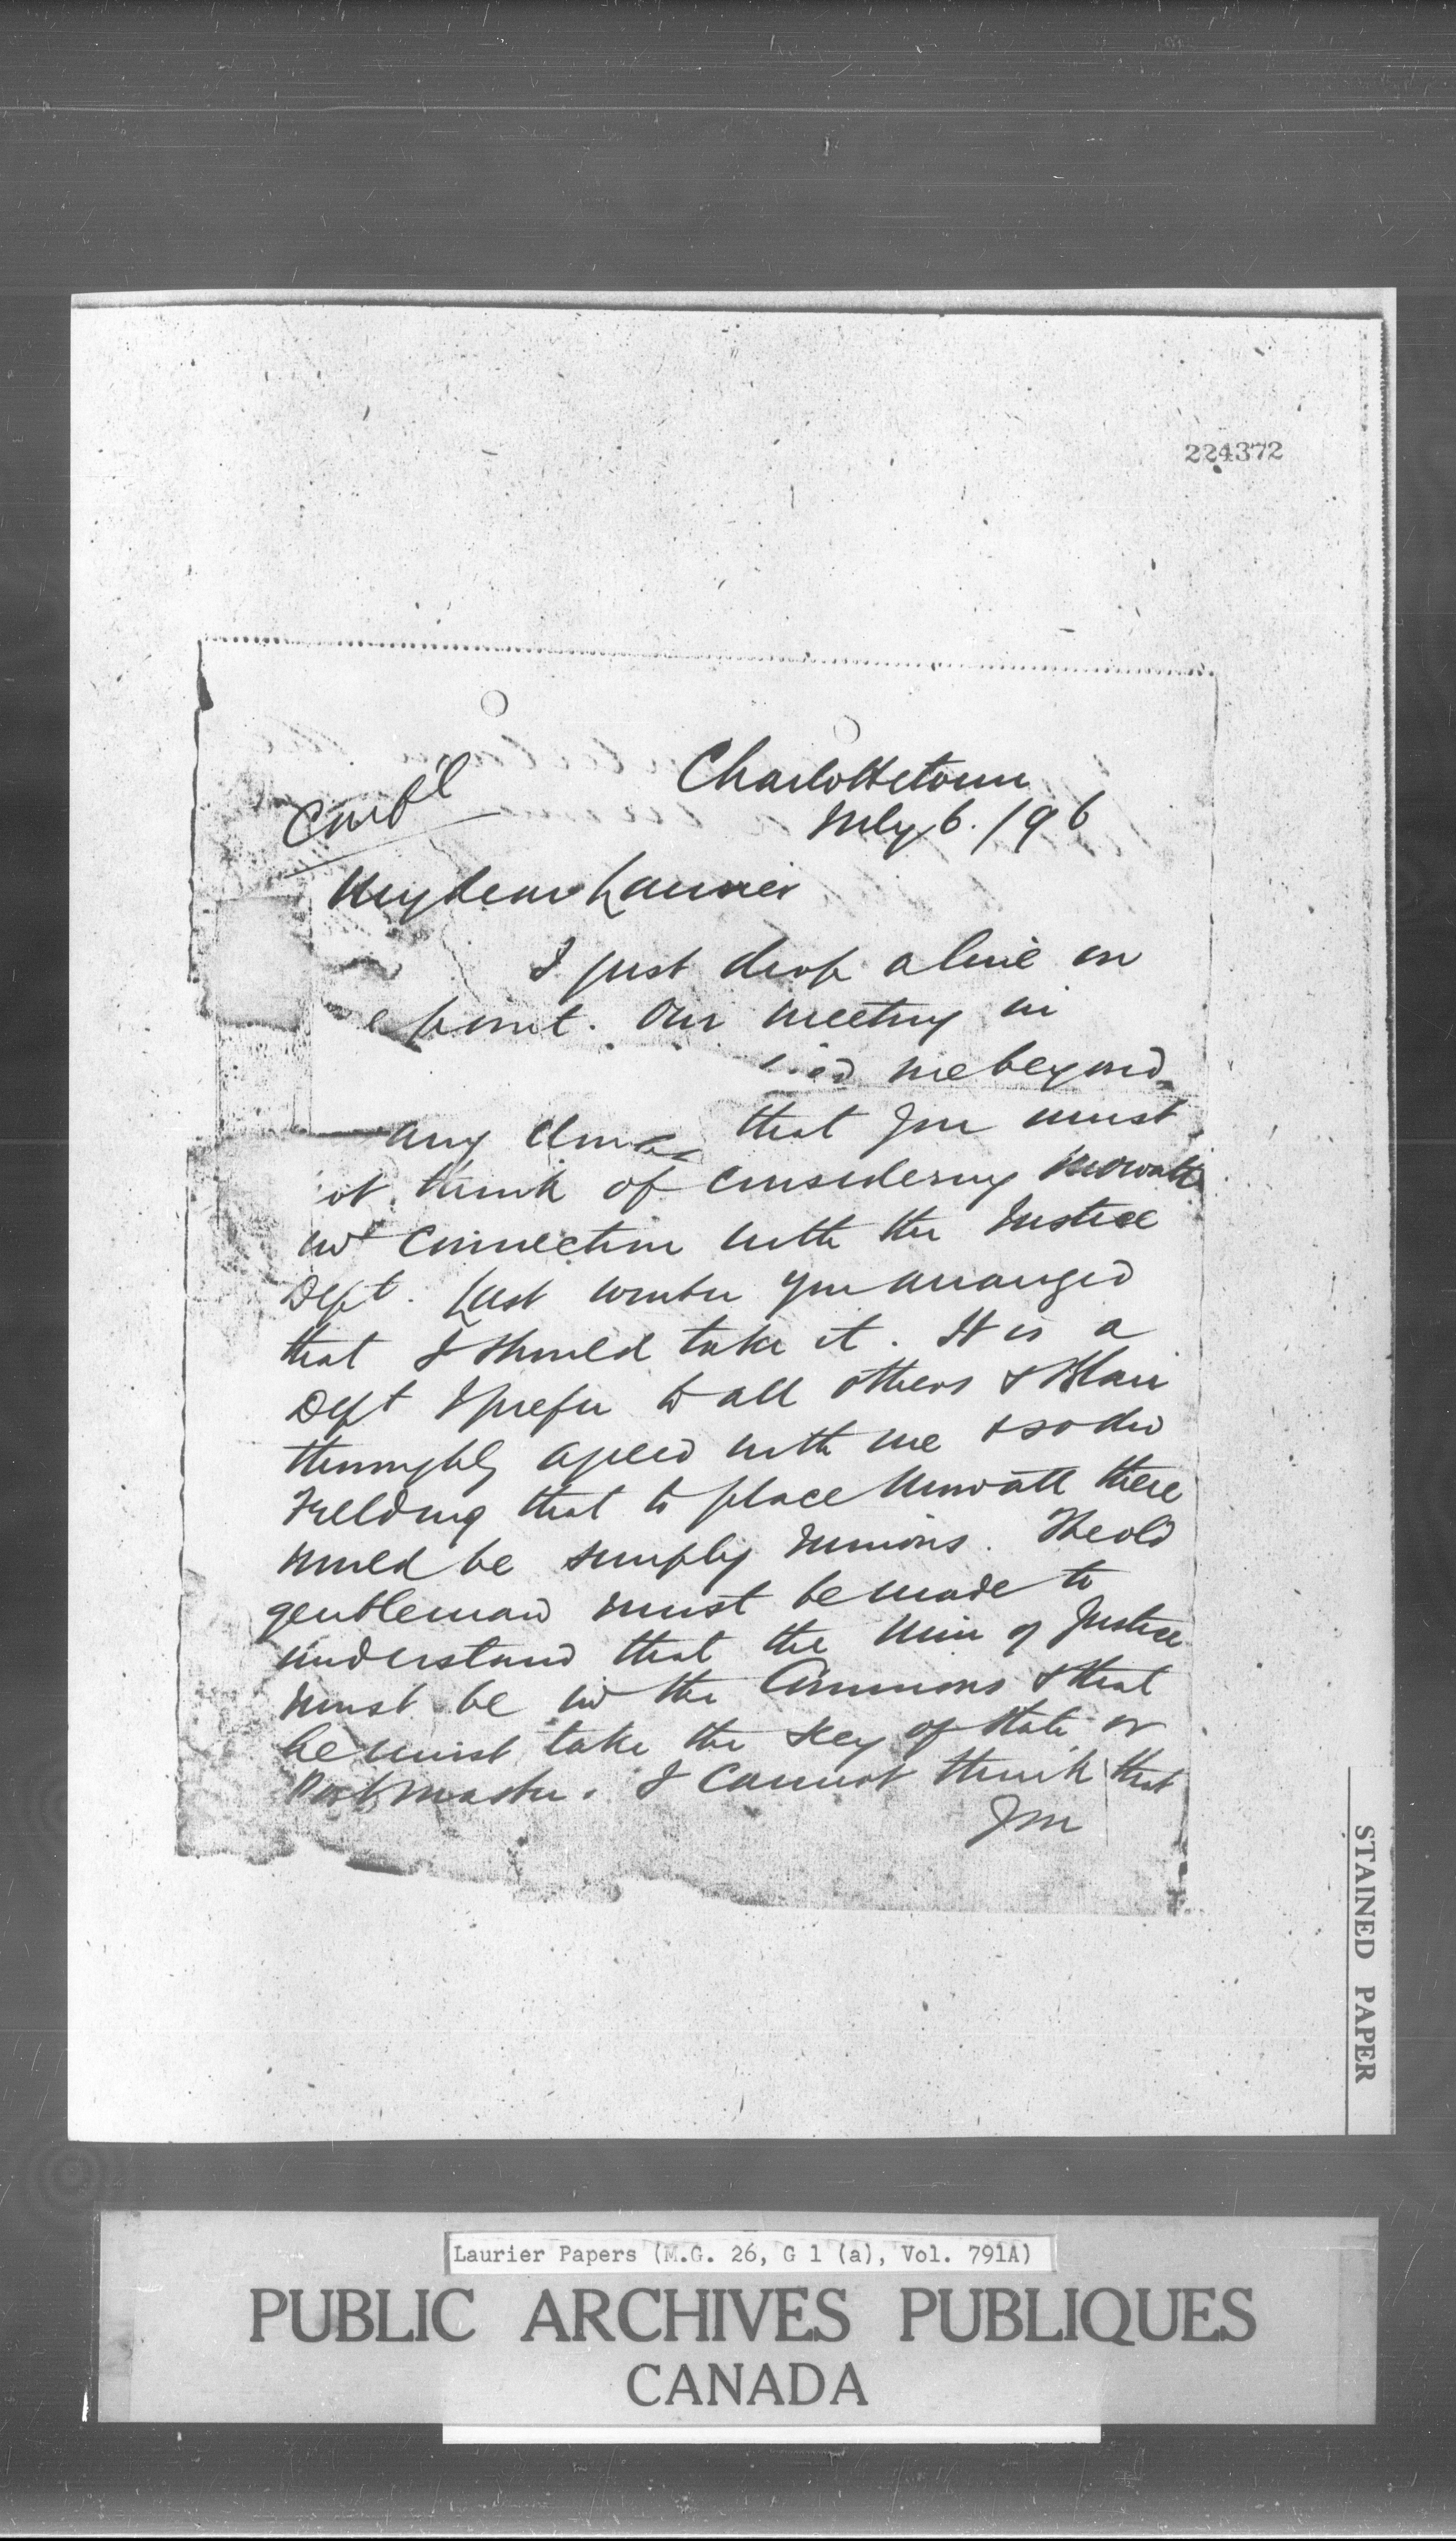 224372
Charlottetown
July 6. /96
Conf'l
My dear Laurier
I just drop a line on
e point. Our meeting in
me beyond
any that you must
ot think of considering Mowatt
in connection with the Justice
Dept. Last winter you arranged
that I should take it. It is a
Dept I prefer to all others & Blair
thoroughly agreed with me & so did
Fielding that to place Mowatt there
would be simply ruinous. The old
gentleman must be made to
understand that the Min of Justice
must be in the Commons & that
he must take the Secy of State or
Postmaster. I cannot think that
you
STAINED PAPER
Laurier Papers (M.G. 26, G 1 (a), Vol. 791A)
PUBLIC ARCHIVES PUBLIQUES
CANADA